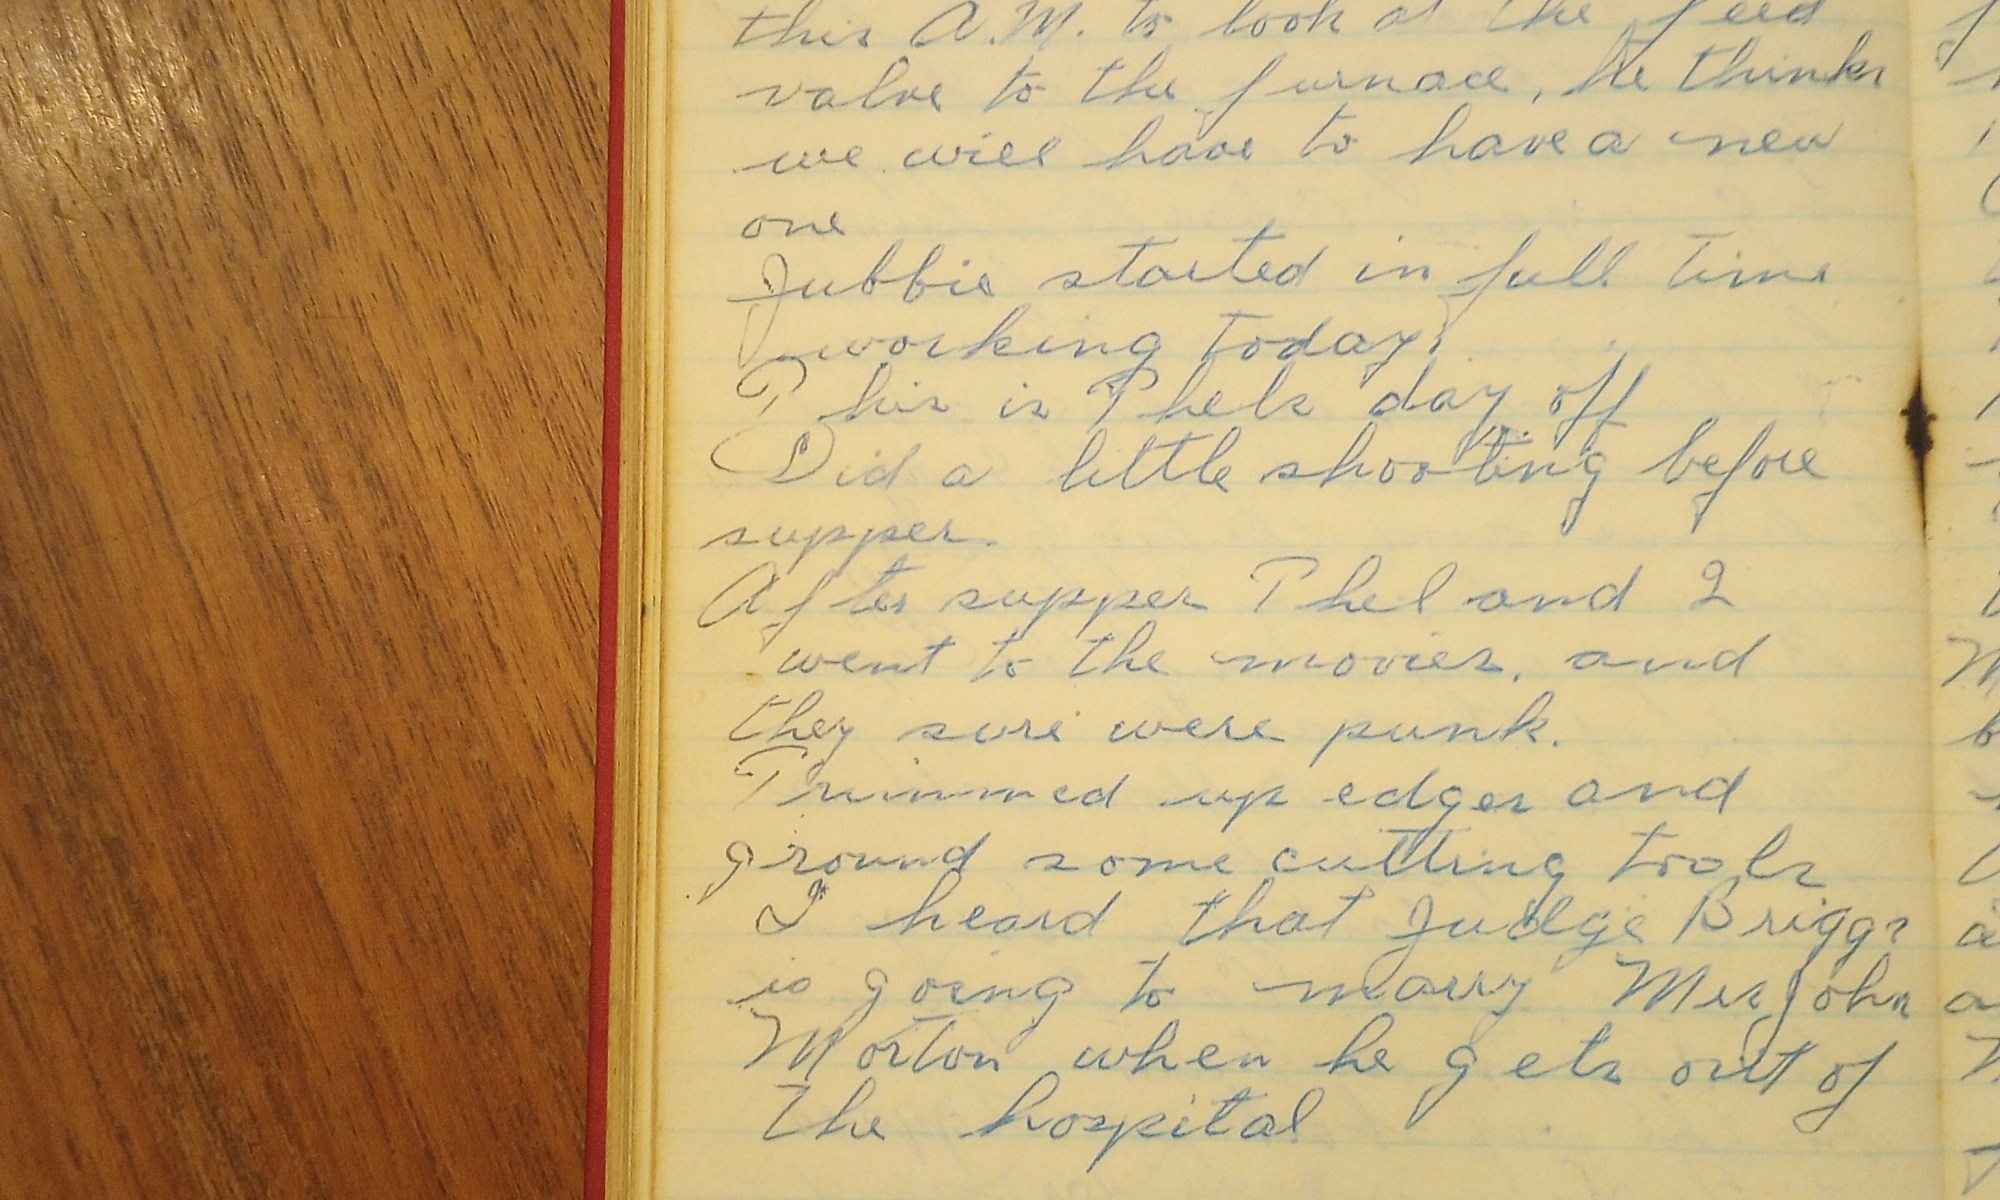 this A.M. to look at the feed
valve to the furnace, he thinks
we will have to have a new
one
Jubbie started in full time
working today.
This is Thels day off
Did a little shooting before
supper.
After supper Thel and I
went to the movies, and
they sure were punk.
Trimmed up edges and
ground some cutting tools
I heard that Judge Briggs
is going to marry Mrs John
Morton when he gets out of
the hospital